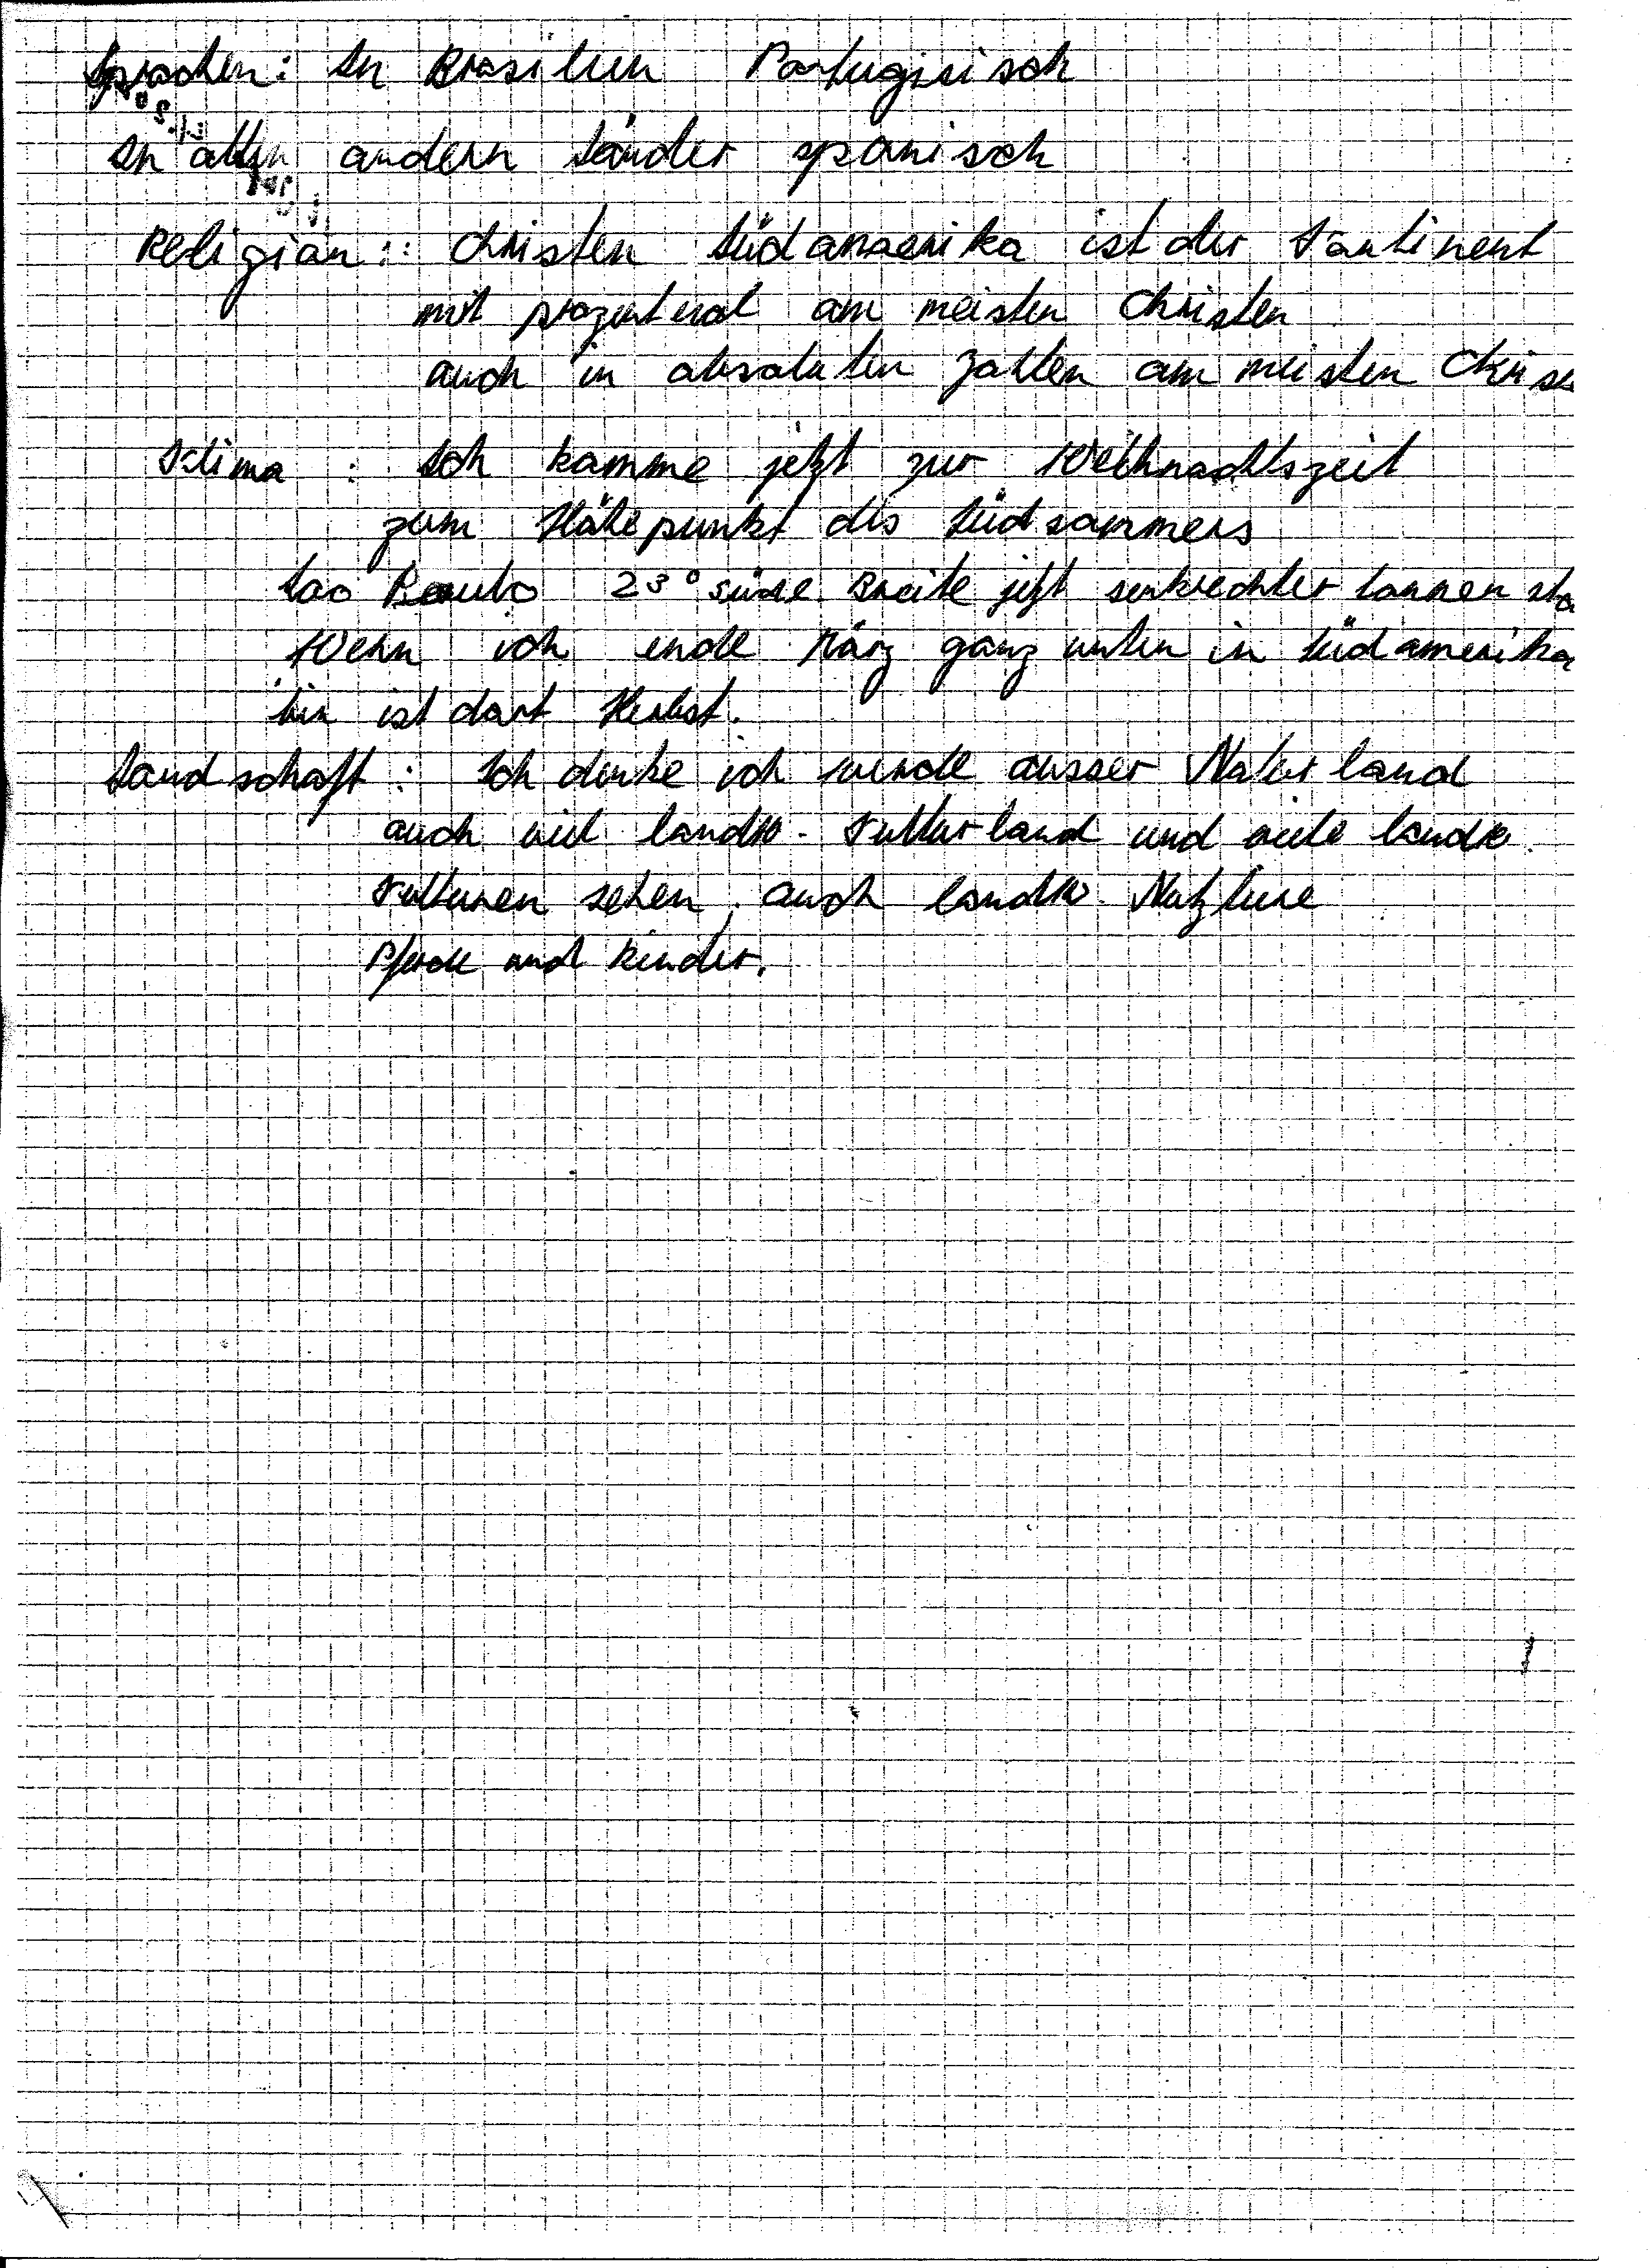 Sprachen: In Brasilien Portugisisch
In allen andern Länder spanisch
Religion: Christen Südamerika ist der Kontinent
mit prozentual am meisten Christen
auch in absoluten Zahlen am meisten Chris
Klima: Ich komme jetzt zur Weihnachtszeit
zum Höhepunkt des Südsommers
Sao Paulo 23° südl. Breite jetzt senkrechter Sonnen sta
Wenn ich ende März ganz unten in Südamerika
bin ist dort Herbst.
Landschaft: Ich denke ich werde ausser Naturland
auch viel landw. Kulturland und viele landw.
Kulturen sehen, auch landw. Nutztiere
Pferde und Rinder.